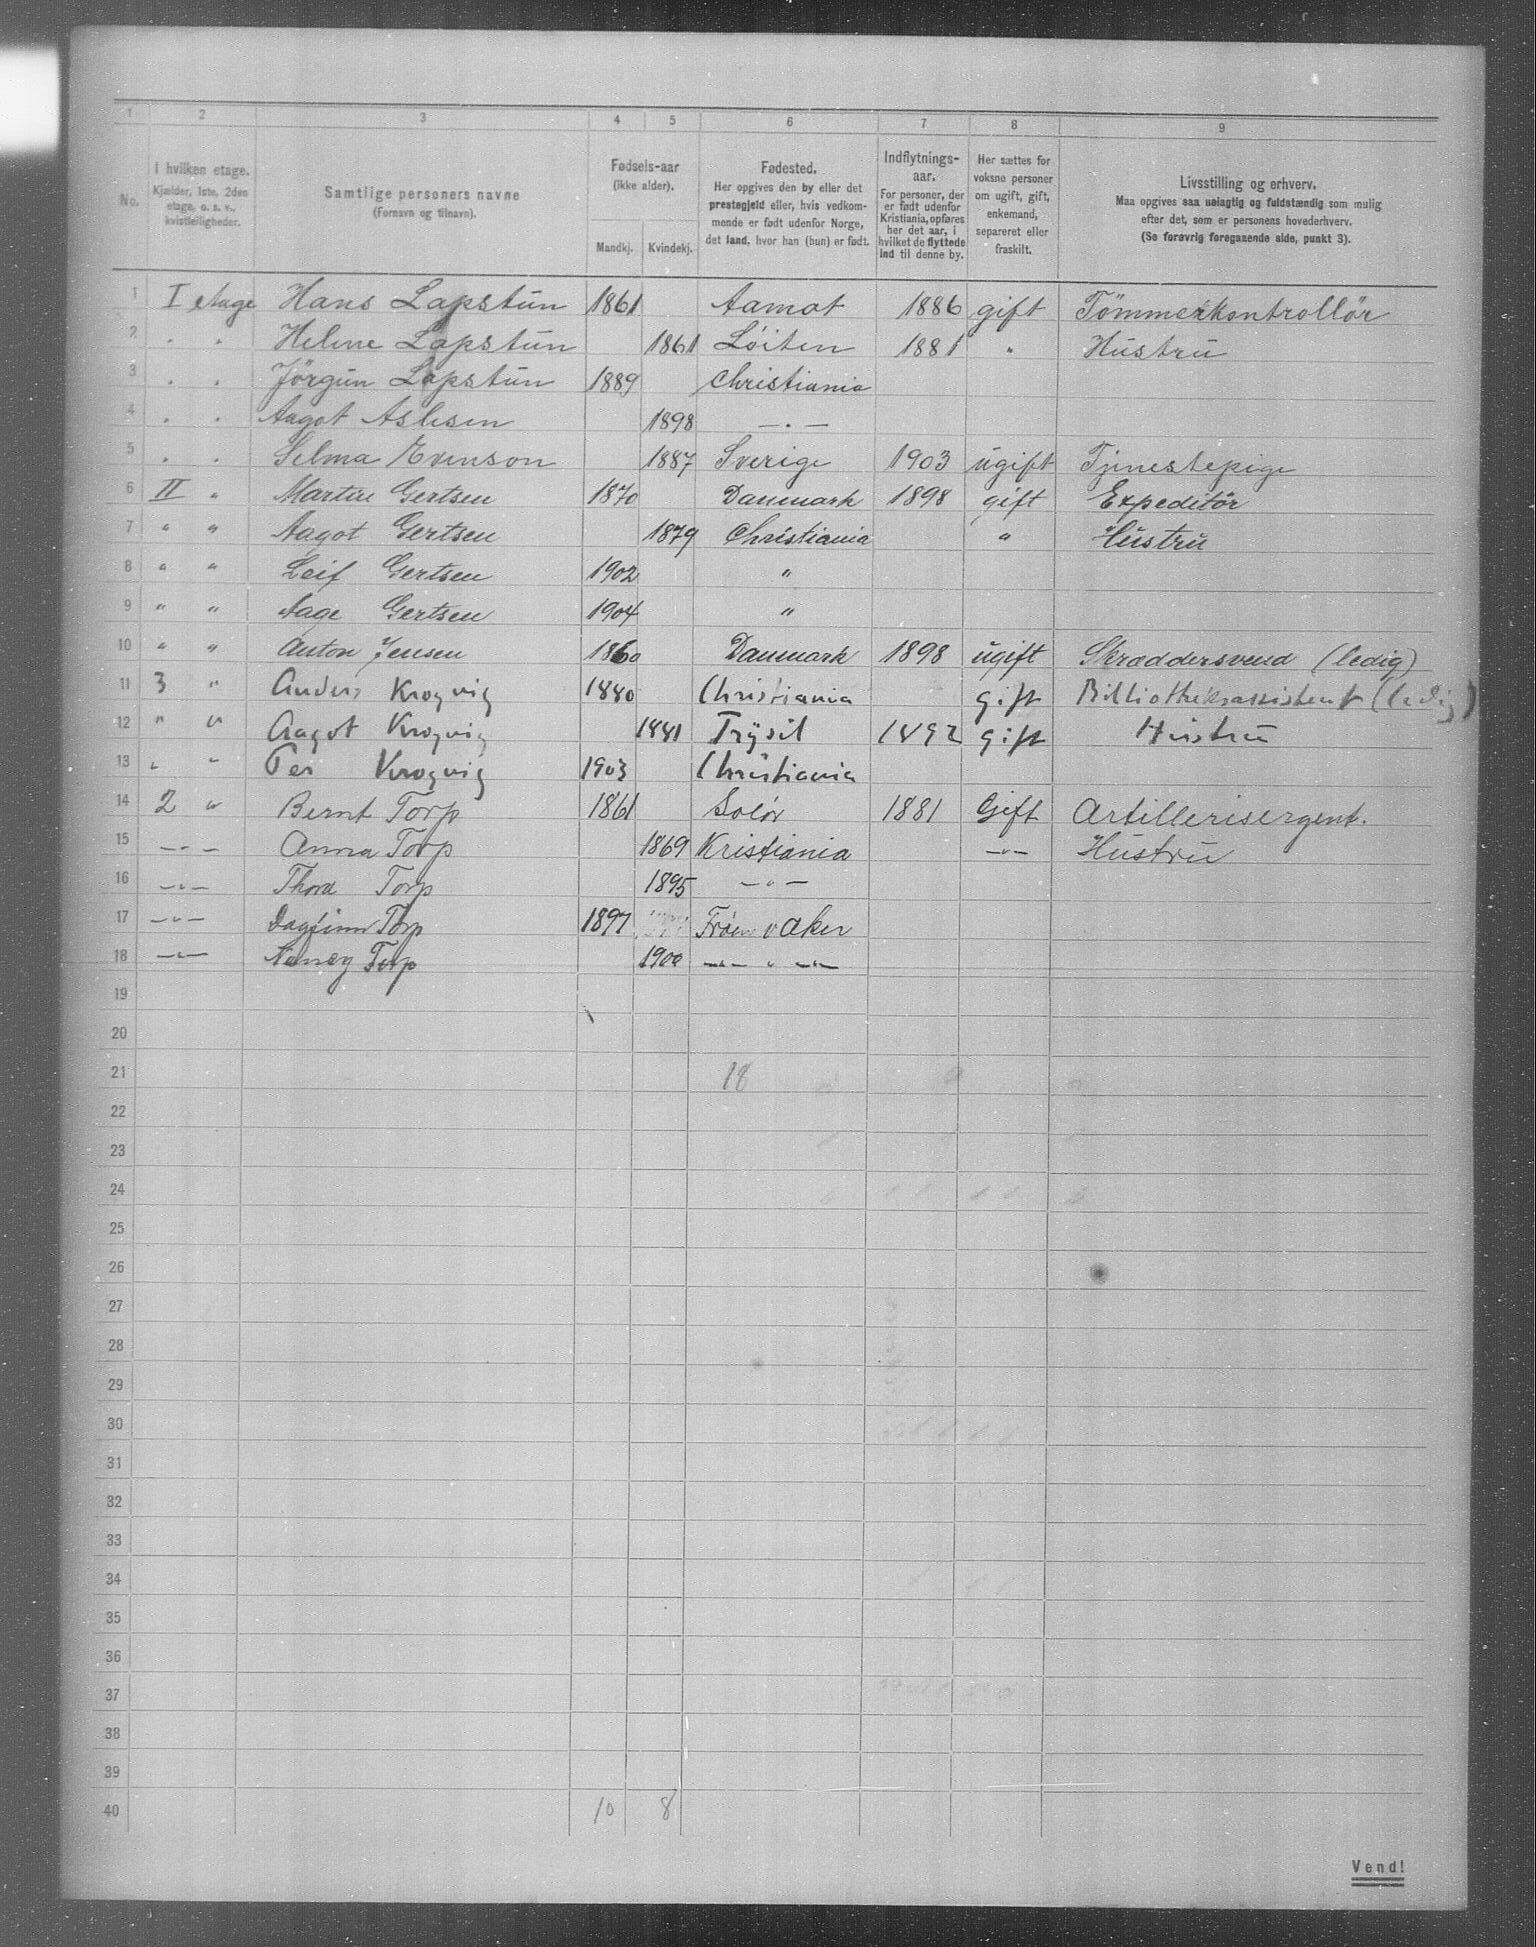 1 2 3 4 5 6 7 8 9
No. I hvilken etage. Kjælder, 1ste, 2den etage, o. s. v., kvistleiligheder.
Samtlige personers navne (Fornavn og tilnavn).
Fødsels-aar (ikke alder). Mandkj. Kvindekj.
Fødested. Her opgives den by eller det prestegjeld eller, hvis vedkommende er født udenfor Norge, det land, hvor han (hun) er født.
Indflytnings-aar. For personer, der er født udenfor Kristiania, opføres her det aar, i hvilket de flyttede ind til denne by.
Her sættes for voksne personer om ugift, gift, enkemand, separeret eller fraskilt.
Livsstilling og erhverv. Maa opgives saa nøiagtig og fuldstændig som mulig efter det, som er personens hovederhverv. (Se forøvrig foregaaende side, punkt 3).
1 I etage Hans Lapstün 1861 Aamot 1886 gift Tömmerkontrollör
2 . . Helene Lapstün 1861 Löiten 1881 " Hüstrü
3 . . Jörgün Lapstün 1889 Christiania
4 . . Aagot Aslesen 1898 — . —
5 . . Selma Evenson 1887 Sverige 1903 ügift Tjenestepige
6 II " Martin Gertsen 1870 Danmark 1898 gift Expeditör
7 " " Aagot Gertsen 1879 Christiania " Hüstrü
8 " " Leif Gertsen 1902 "
9 " " Aage Gertsen 1904 "
10 " " Anton Jensen 1860 Danmark 1898 ugift Skræddersvend (ledig)
11 3 " Anders Krogvig 1880 Christiania gift Bibliotheksassistent (ledig)
12 " " Aagot Krogvig 1881 Trysil 1892 gift Hüstrü
13 " " Per Krogvig 1903 Christiania
14 2 " Bernt Torp 1861 Solör 1881 Gift Artillerisergent.
15 — " — Anna Torp 1869 Kristiania — " — Hüstrü
16 — " — Thora Torp 1895 — " —
17 — " — Dagfinn Torp 1897 v Aker
18 — " — Nancy Torp 1900 — " —
19
20
21 18
22
23
24
25
26
27
28
29
30
31
32
33
34
35
36
37
38
39
40 10 8
Vend!